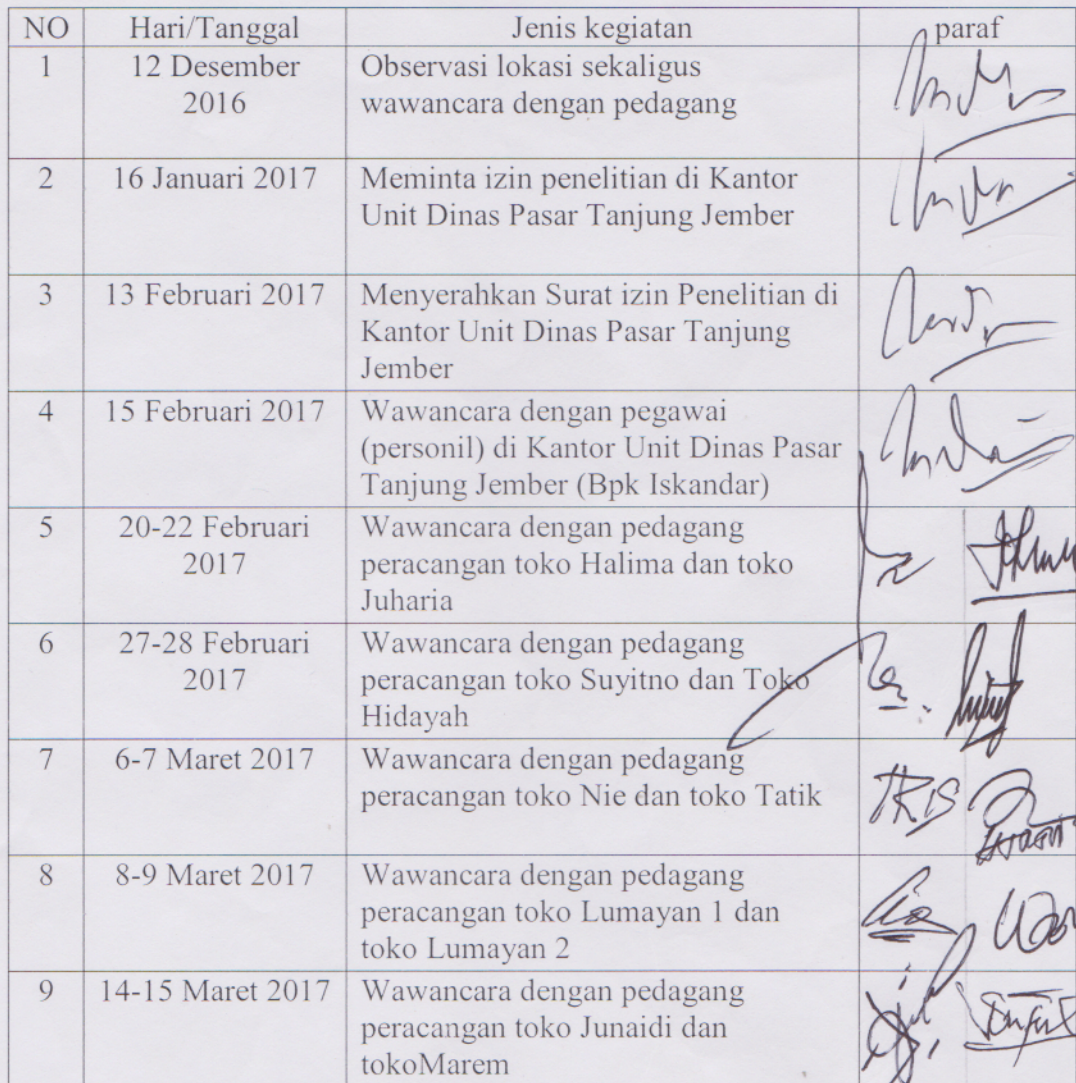 NO Hari/Tanggal Jenis kegiatan paraf
1 12 Desember Observasi lokasi sekaligus
2016 wawancara dengan pedagang
2 16 Januari 2017 Meminta izin penelitian di Kantor
Unit Dinas Pasar Tanjung Jember
3 13 Februari 2017 Menyerahkan Surat izin Penelitian di
Kantor Unit Dinas Pasar Tanjung
Jember
4 15 Februari 2017 Wawancara dengan pegawai
(personil) di Kantor Unit Dinas Pasar
Tanjung Jember (Bpk Iskandar)
5 20-22 Februari Wawancara dengan pedagang
2017 peracangan toko Halima dan toko
Juharia
6 27-28 Februari Wawancara dengan pedagang
2017 peracangan toko Suyitno dan Toko
Hidayah
7 6-7 Maret 2017 Wawancara dengan pedagang
peracangan toko Nie dan toko Tatik
8 8-9 Maret 2017 Wawancara dengan pedagang
peracangan toko Lumayan 1 dan
toko Lumayan 2
9 14-15 Maret 2017 Wawancara dengan pedagang
peracangan toko Junaidi dan
tokoMarem